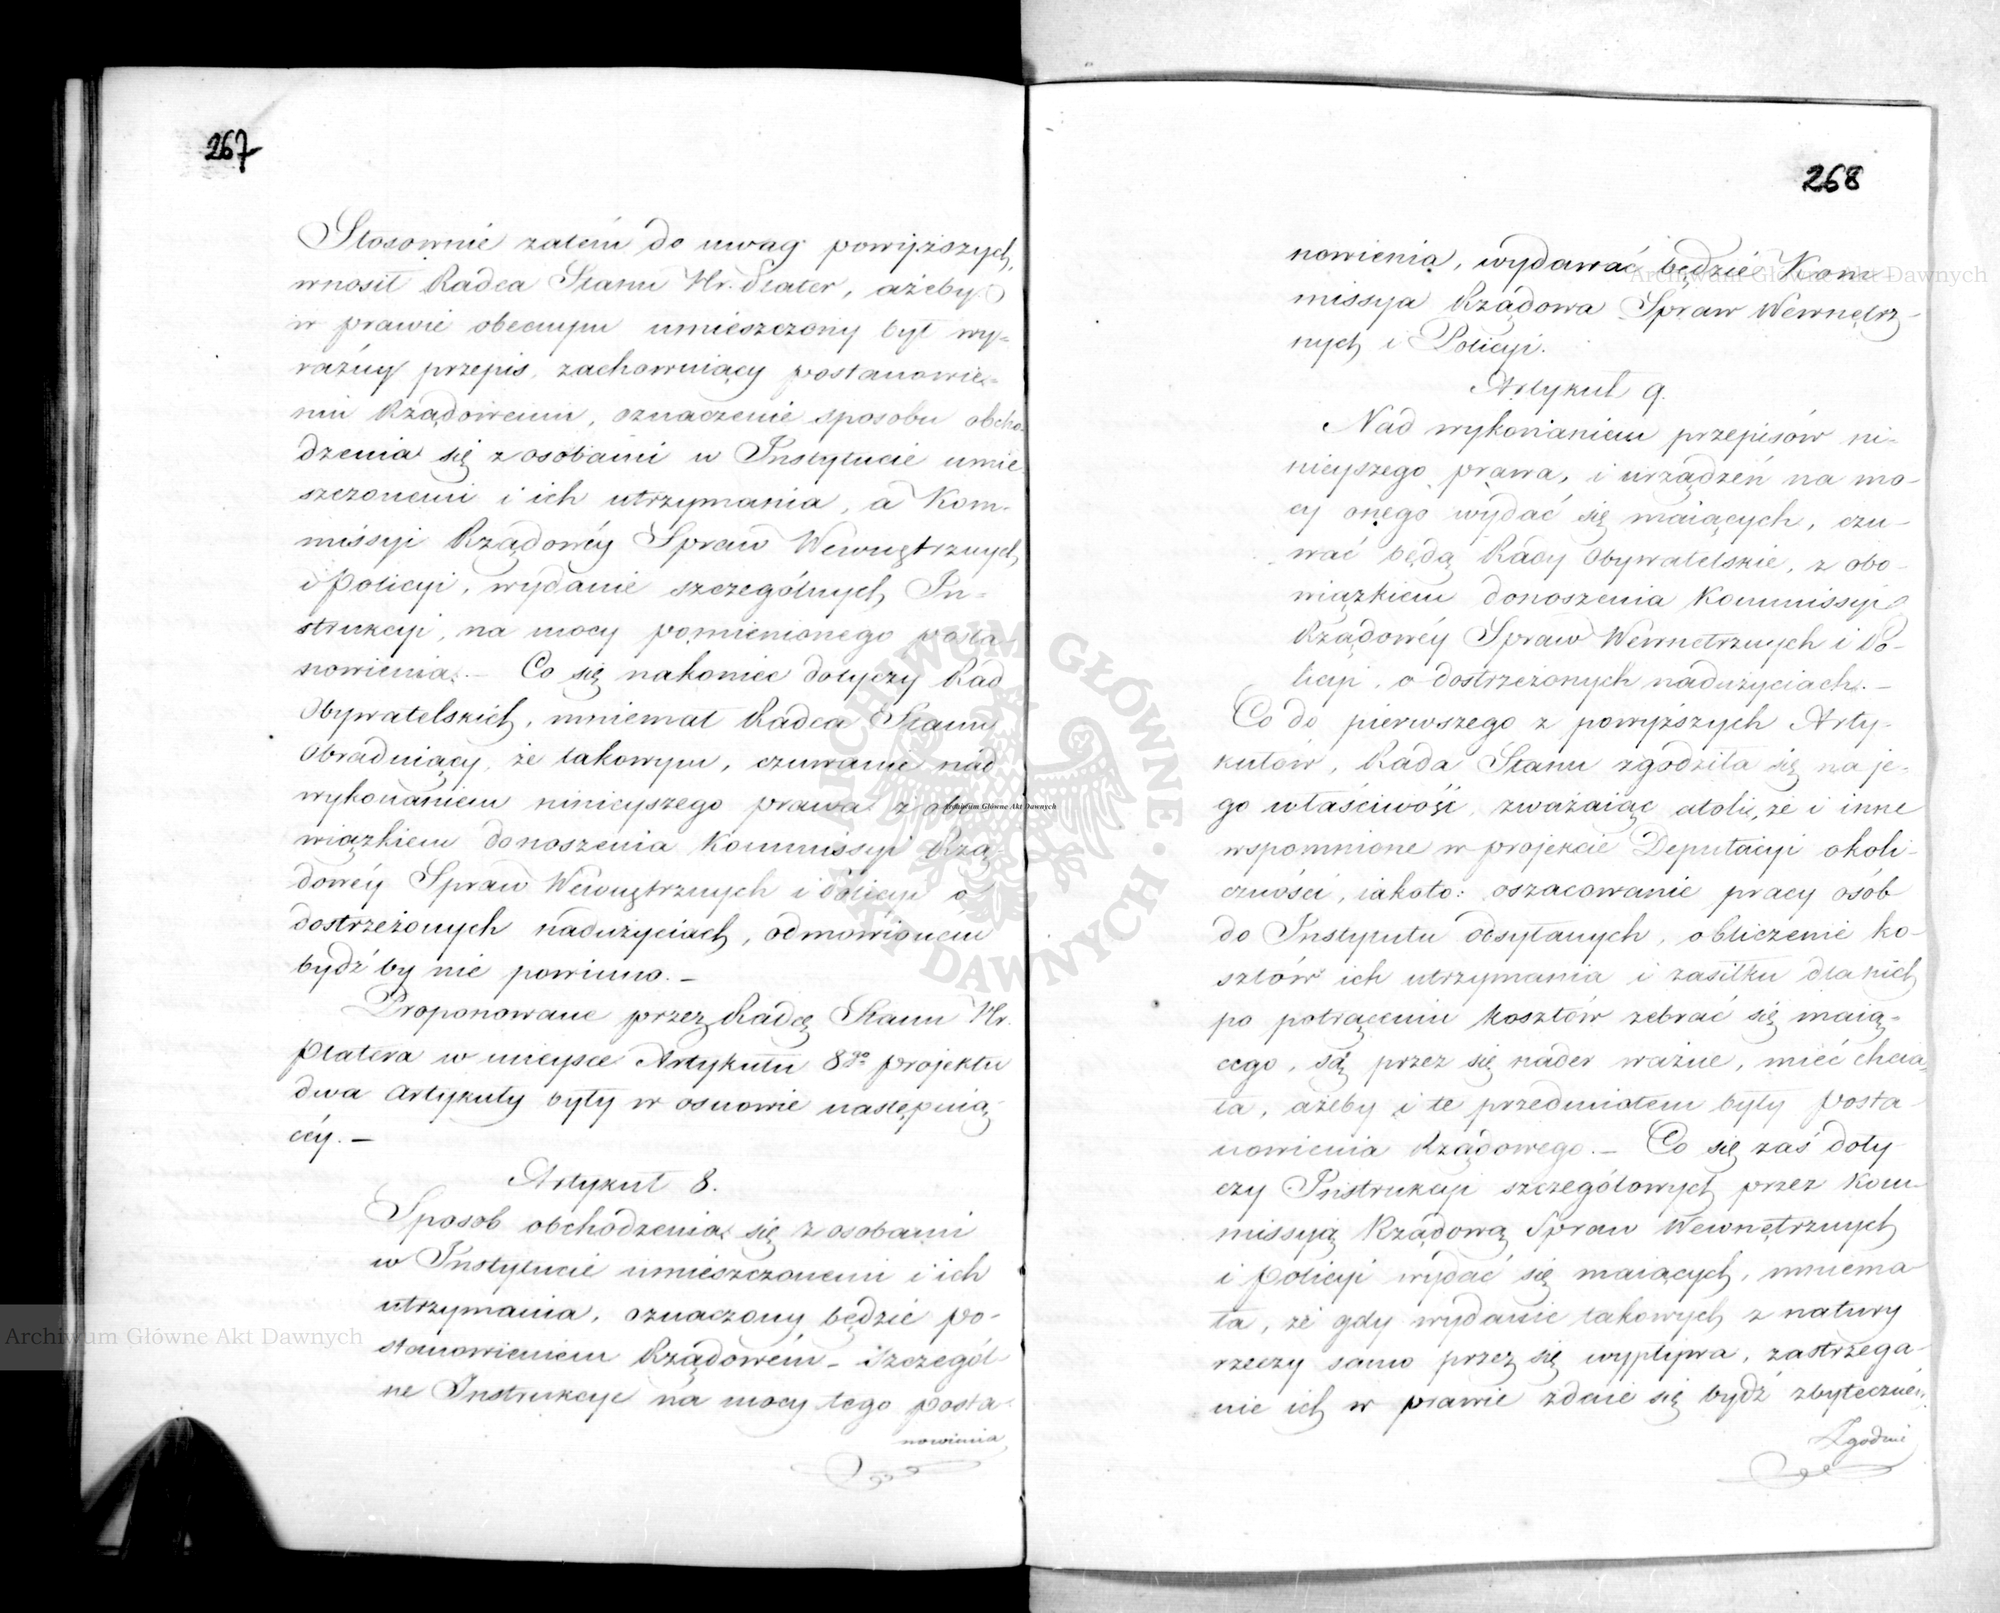 267
Stosownie zatém do uwag powyższych,
wnosił Radca Stanu Hr. Plater, ażeby
w prawie obecnym umieszczony był wy-
raźny przepis, zachowuiący postanowie-
niu Rządowemu, oznaczenie sposobu obcho-
dzenia się z osobami w Instytucie umie-
szczonemi i ich utrzymania, a Kom-
missyi Rządowéy Spraw Wewnętrznych
i Policyi, wydanie szczególnych In-
strukcyi, na mocy pomienionego posta-
nowienia. — Co się nakoniec dotyczy Rad
Obywatelskich, mniemał Radca Stanu
Obraduiący, że takowym, czuwanie nad
wykonaniem ninieyszego prawa z obo-
wiązkiem donoszenia Kommissyi Rzą-
dowéy Spraw Wewnętrznych i Policyi o
dostrzeżonych nadużyciach, odmówioném
bydź by nie powinno. —
Proponowane przez Radcę Stanu Hr.
Platera w mieysce Artykułu 8go projektu
dwa Artykuły były w osnowie następuią-
céy. —
Artykuł 8.
Sposób obchodzenia się z osobami
w Instytucie umieszczonemi i ich
utrzymania, oznaczony będzie po-
stanowieniem Rządowém — Szczegól-
ne Instrukcye na mocy tego posta-
nowienia
268
nowienia, wydawać będzie Kom-
missya Rządowa Spraw Wewnętrz-
nych i Policyi.
Artykuł 9.
Nad wykonaniem przepisów ni-
nieyszego prawa, i urządzeń na mo-
cy onego wydać się maiących, czu-
wać będą Rady Obywatelskie, z obo-
wiązkiem donoszenia Kommissyi
Rządowéy Spraw Wewnętrznych i Po-
licyi, o dostrzeżonych nadużyciach. —
Co do pierwszego z powyższych Arty-
kułów, Rada Stanu zgodziła się na je-
go właściwość, zważaiąc atoli, że i inne
wspomnione w projekcie Deputacyi okoli-
czności, iakoto: oszacowanie pracy osób
do Instytutu odsyłanych, obliczenie ko-
sztów ich utrzymania i zasiłku dla nich
po potrąceniu kosztów zebrać się maią-
cego, są przez się nader ważne, mieć chcia-
ła, ażeby i te przedmiotem były posta-
nowienia Rządowego. — Co się zaś doty-
czy Instrukcyi szczegółowych przez Kom-
missyią Rządową Spraw Wewnętrznych
i Policyi wydać się maiących, mniema-
ła, że gdy wydanie takowych z natury
rzeczy samo przez się wypływa, zastrzega-
nie ich w prawie zdaie się bydź zbyteczném.
Zgodnie
Archiwum Główne Akt Dawnych
Archiwum Główne Akt Dawnych
Archiwum Główne Akt Dawnych
ARCHIWUM GŁÓWNE AKT DAWNYCH